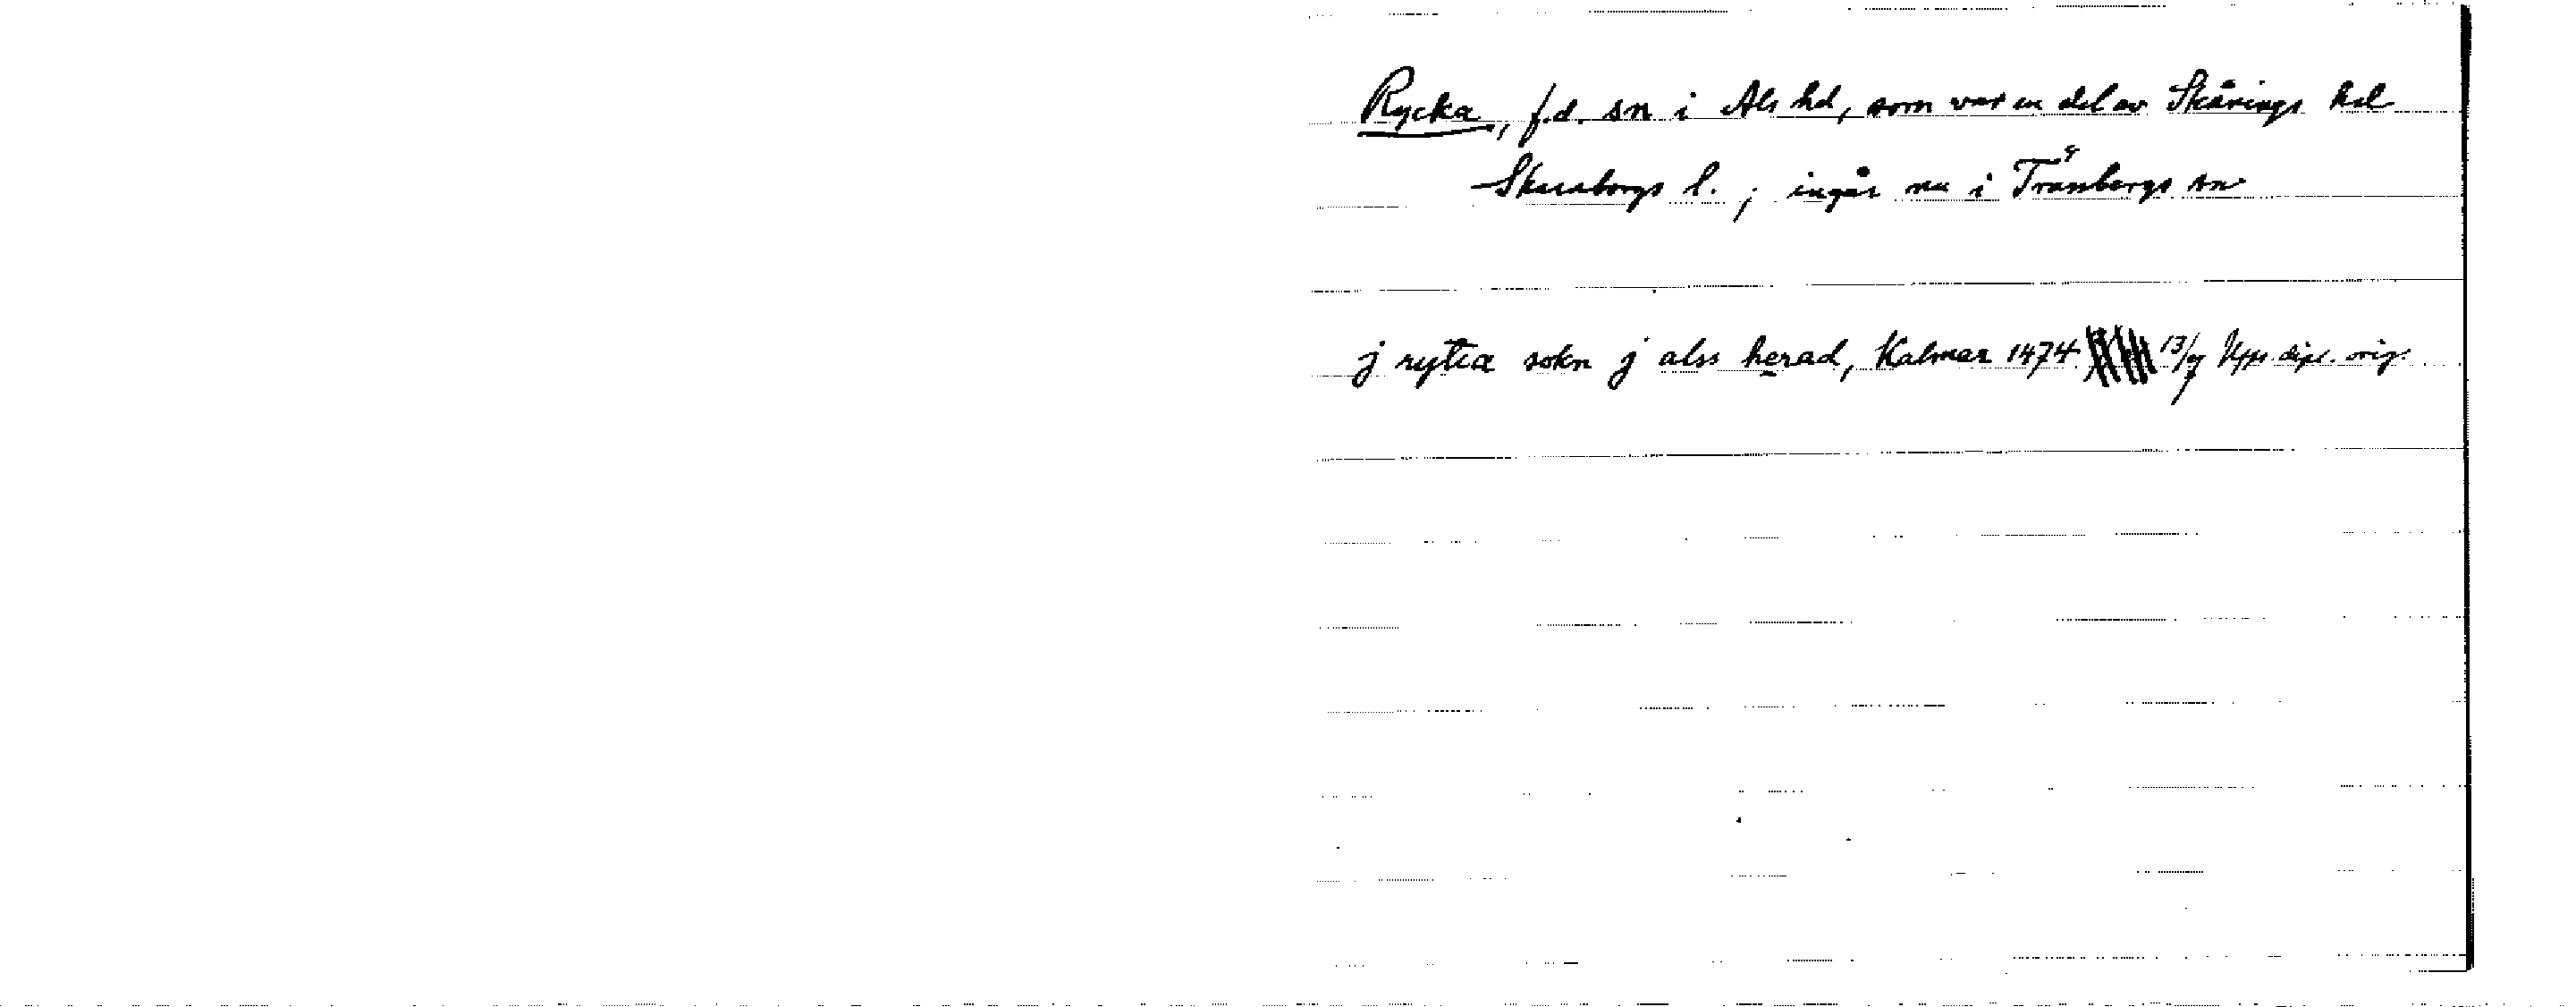 Rycka, f.d. sn i Als hd, som var en del av Skånings hd
Skaraborgs l.; ingår nu i Tråvbergs sn
j rytia sokn j alss herad, Kalmar 1474 13/9 Upps. dipl. orig.